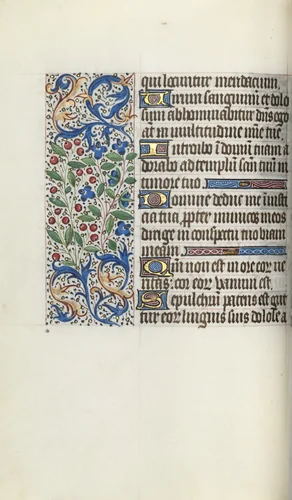 qui locuntur mendacium.
Uirum sanguinum et dolo
sum abhominabitur dñs ego
at in multitudine mie tue.
Introibo i domũ tuam a
dorabo ad templũ san tuũ in
timore tuo
Domine deduc me i iusti
cia tua ꝓpter inimicos meos
dirige in conspectu tuo viam
meam
Qm non est in ore eor ue
ritas: cor eor vanum est.
Sepulchrũ patens est gut
tur eor linguis suis dolose a